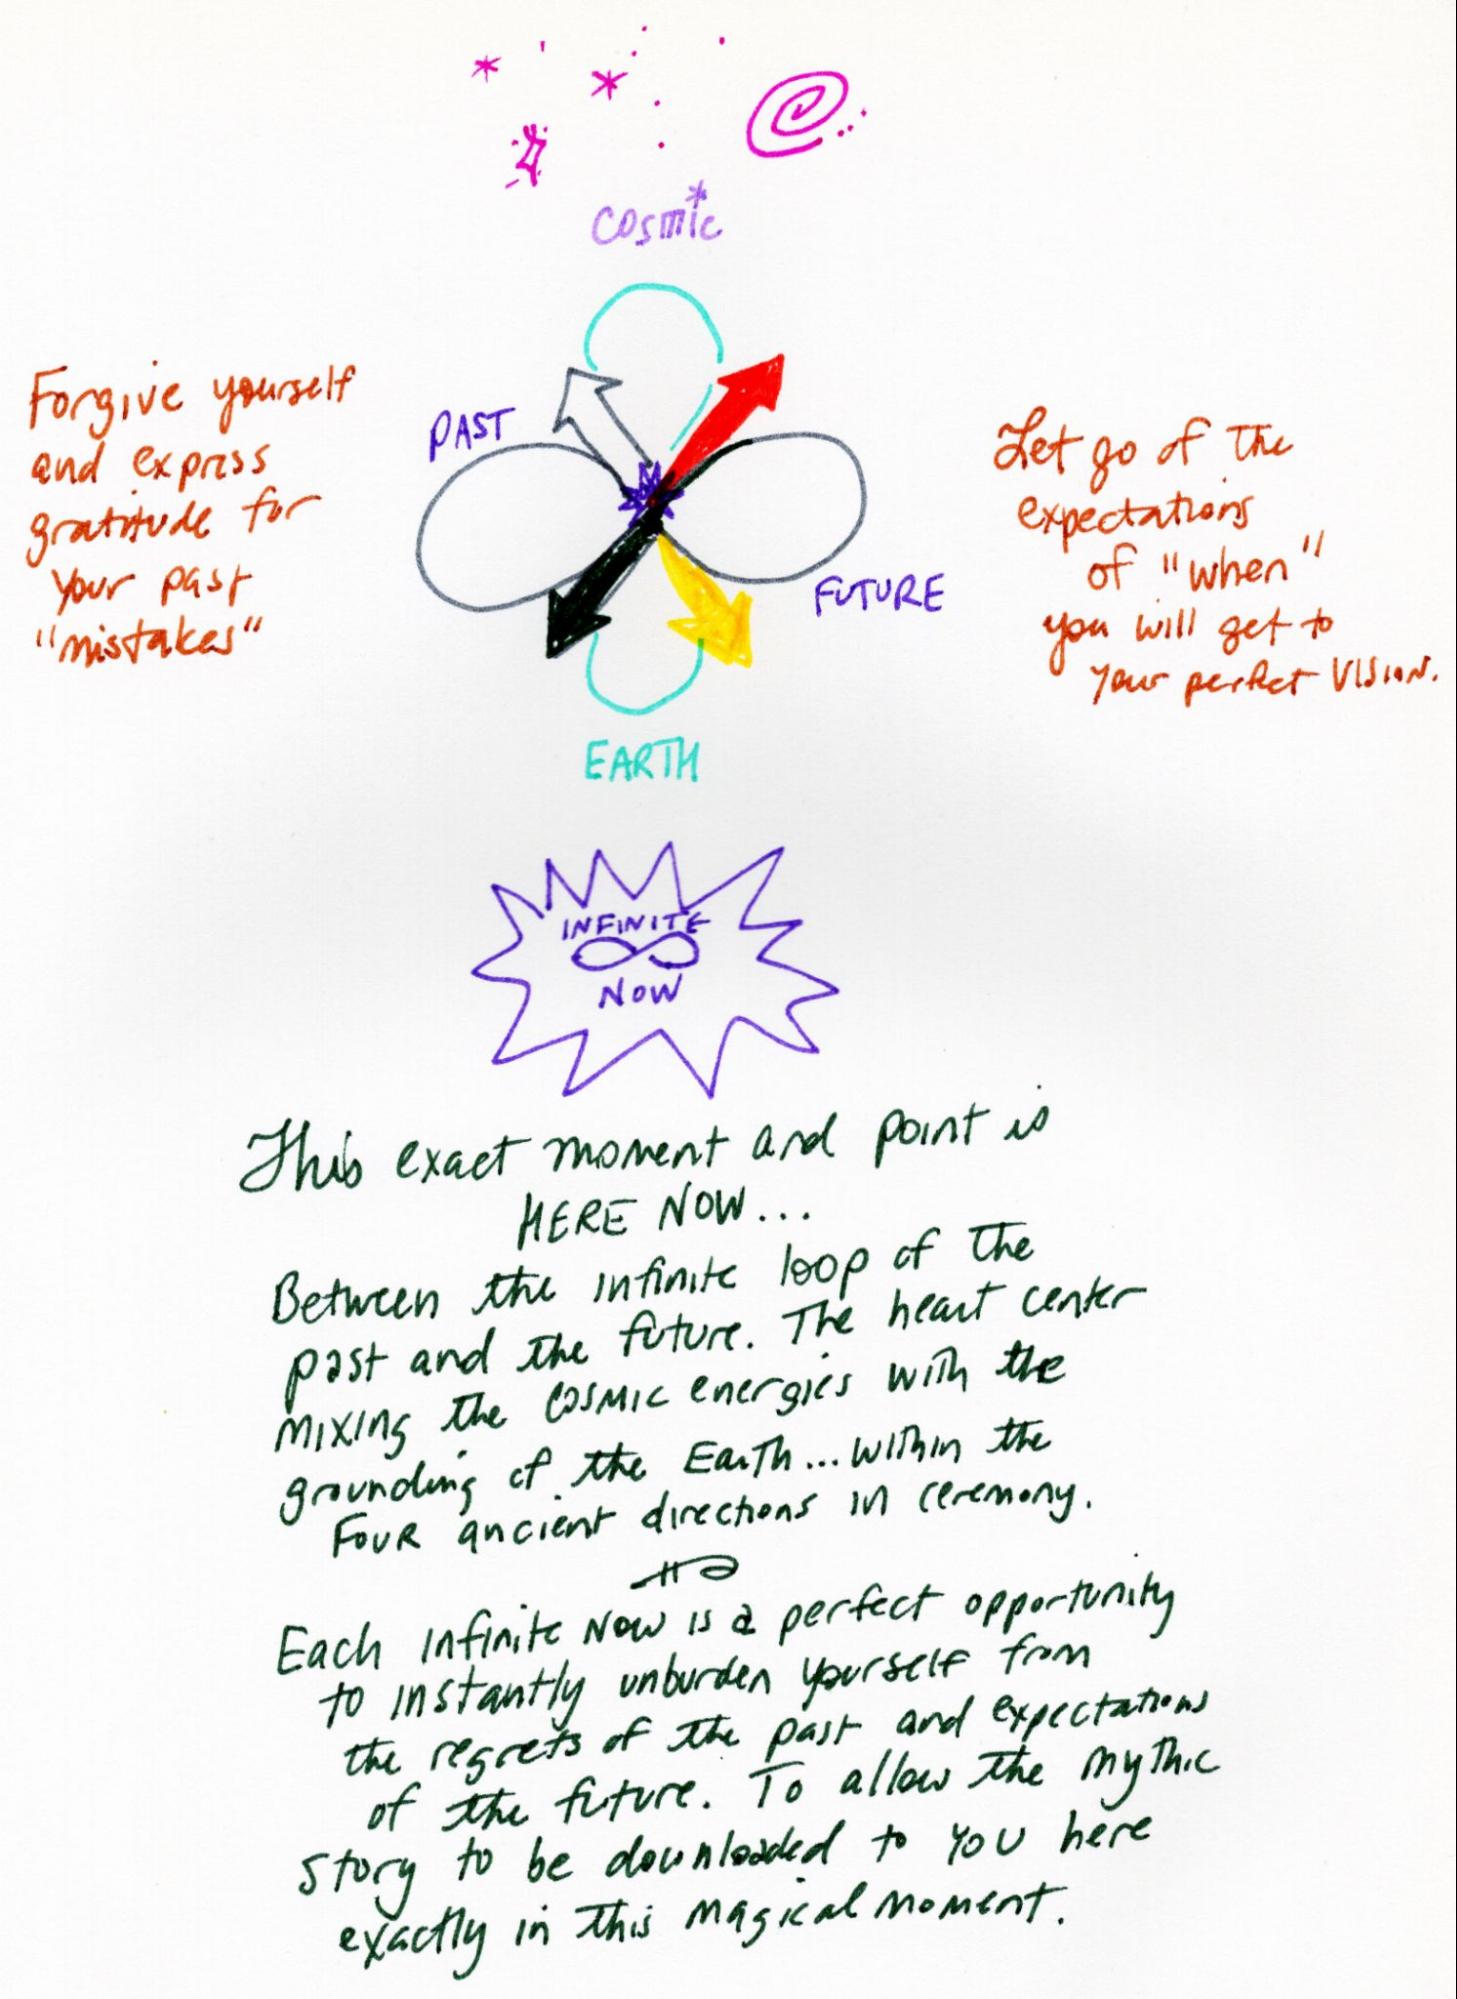 Cosmic
Forgive yourself
and express
gratitude for
your past
"mistakes"
PAST
FUTURE
Let go of the
expectations
of "when"
you will get to
your perfect VISION.
EARTH
INFINITE
∞
NOW
This exact moment and point is
HERE NOW...
Between the infinite loop of the
past and the future. The heart center
mixing the cosmic energies with the
grounding of the Earth... within the
FOUR ancient directions in ceremony.
Each infinite NOW is a perfect opportunity
to instantly unburden yourself from
the regrets of the past and expectations
of the future. To allow the mythic
story to be downloaded to YOU here
exactly in this magical moment.